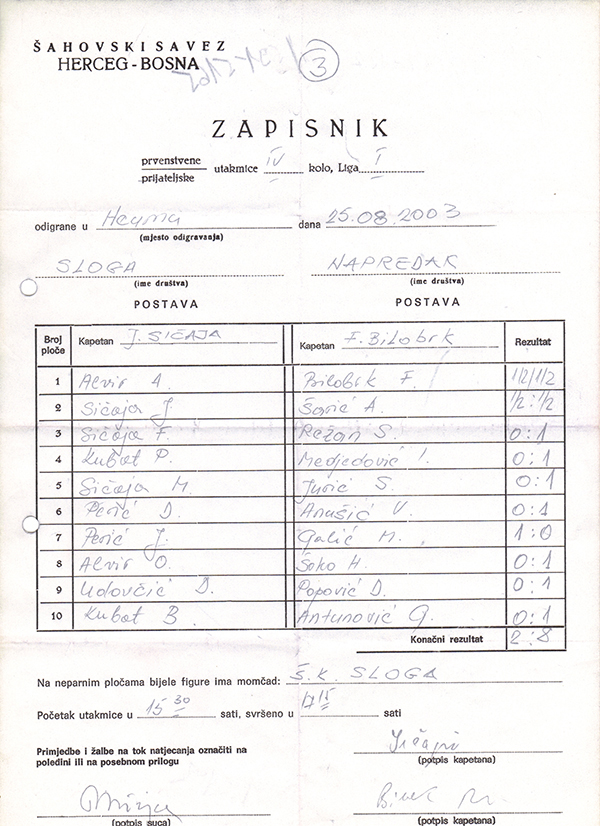 ŠAHOVSKI SAVEZ
HERCEG-BOSNA
3
ZAPISNIK
prvenstvene
prijateljske utakmice IV kolo, Liga I
odigrane u Neumu dana 25.08.2003
(mjesto odigravanja)
SLOGA NAPREDAK
(ime društva) (ime društva)
POSTAVA POSTAVA
Broj ploče Kapetan J. SIČAJA Kapetan F. Bilobrk Rezultat
1 Alvir A. Bilobrk F. 1/2 1/2
2 Sičaja J. Šarić A. 1/2:1/2
3 Sičaja F. Režan S. 0:1
4 Kubat P. Medjedović I. 0:1
5 Sičaja M. Jurić S. 0:1
6 Perić D. Anušić V. 0:1
7 Perić J. Galić M. 1:0
8 Alvir O. Šoko H. 0:1
9 Udovčić D. Popović D. 0:1
10 Kubat B. Antunović G. 0:1
Konačni rezultat 2:8
Na neparnim pločama bijele figure ima momčad: Š.K. SLOGA
Početak utakmice u 15 30 sati, svršeno u 17 15 sati
Primjedbe i žalbe na tok natjecanja označiti na
poleđini ili na posebnom prilogu
(potpis kapetana)
(potpis suca) (potpis kapetana)